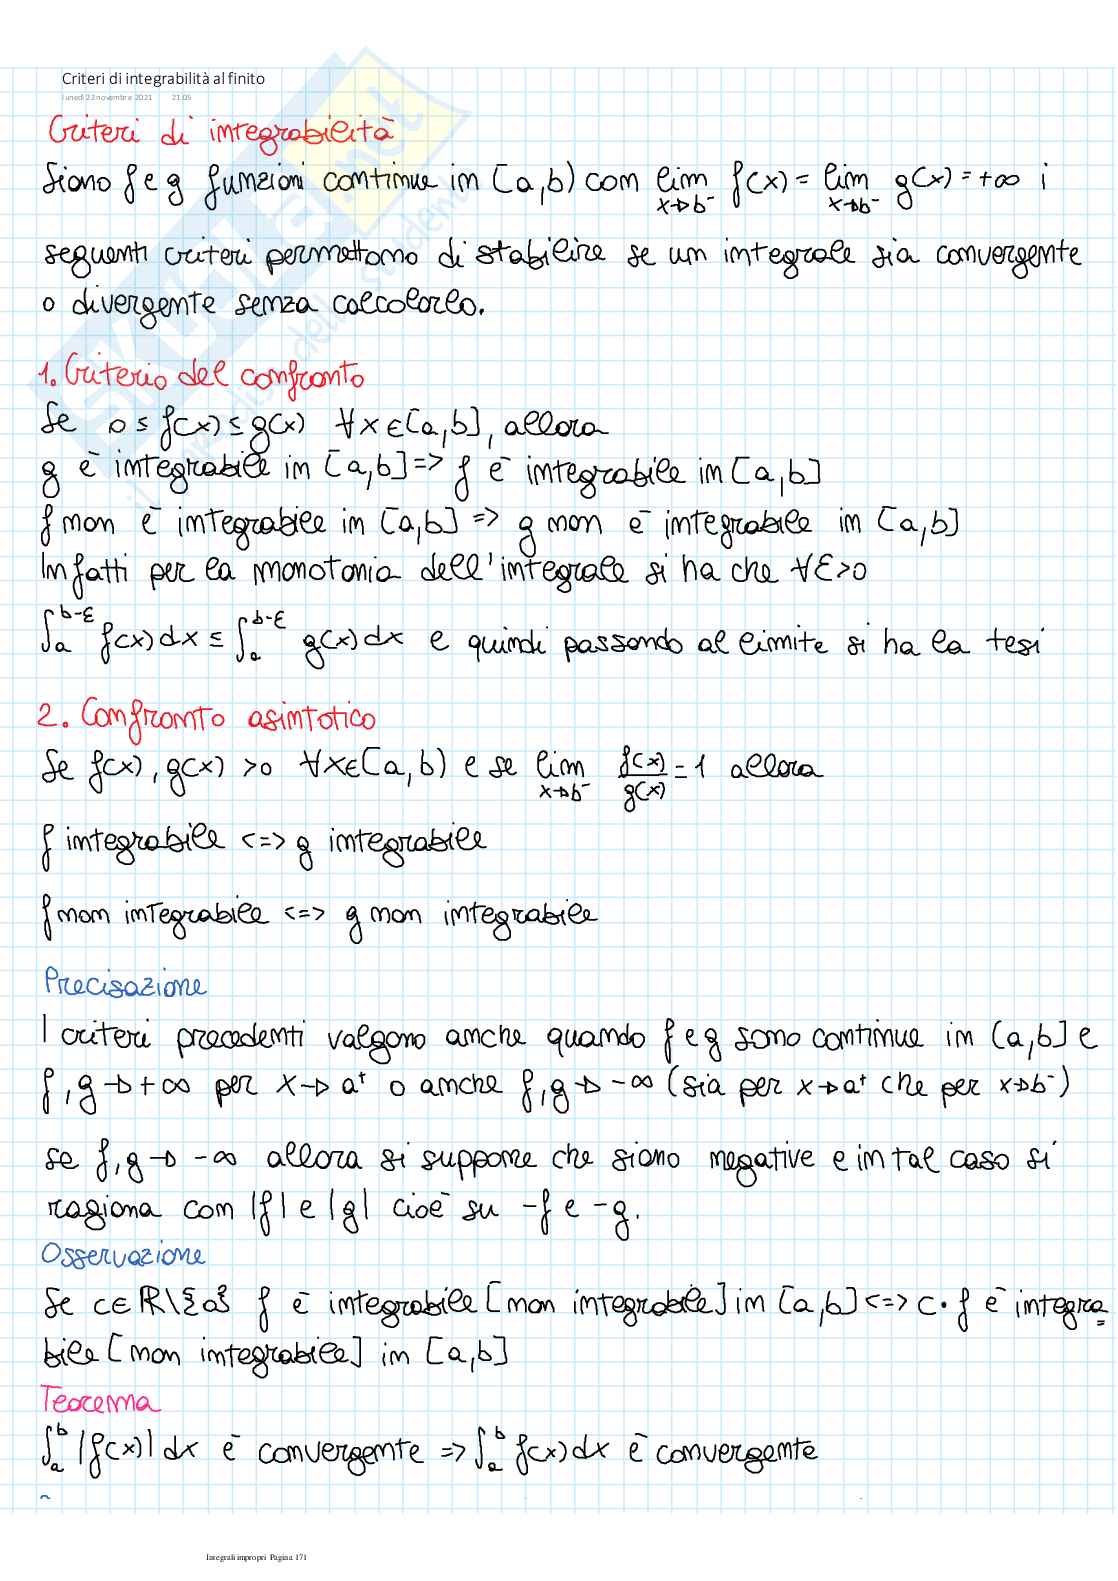 Criteri di integrabilità al finito
lunedì 22 novembre 2021 21:05
Criteri di integrabilità
Siano f e g funzioni continue in [a,b) con lim x→b⁻ f(x) = lim x→b⁻ g(x) = +∞ i
seguenti criteri permettono di stabilire se un integrale sia convergente
o divergente senza calcolarlo.
1. Criterio del confronto
Se 0 ≤ f(x) ≤ g(x) ∀x∈[a,b], allora
g è integrabile in [a,b] => f è integrabile in [a,b]
f non è integrabile in [a,b] => g non è integrabile in [a,b]
Infatti per la monotonia dell'integrale si ha che ∀ε>0
∫ₐᵇ⁻ᵋ f(x)dx ≤ ∫ₐᵇ⁻ᵋ g(x)dx e quindi passando al limite si ha la tesi
2. Confronto asintotico
Se f(x), g(x) >0 ∀x∈[a,b) e se lim x→b⁻ f(x)/g(x) = 1 allora
f integrabile <=> g integrabile
f non integrabile <=> g non integrabile
Precisazione
I criteri precedenti valgono anche quando f e g sono continue in (a,b] e
f,g → +∞ per x→a⁺ o anche f,g → -∞ (sia per x→a⁺ che per x→b⁻)
se f,g → -∞ allora si suppone che siano negative e in tal caso si
ragiona con |f| e |g| cioè su -f e -g.
Osservazione
Se c∈ℝ\{0} f è integrabile [non integrabile] in [a,b] <=> c·f è integra=
bile [non integrabile] in [a,b]
Teorema
∫ₐᵇ |f(x)| dx è convergente => ∫ₐᵇ f(x)dx è convergente
Integrali impropri Pagina 171